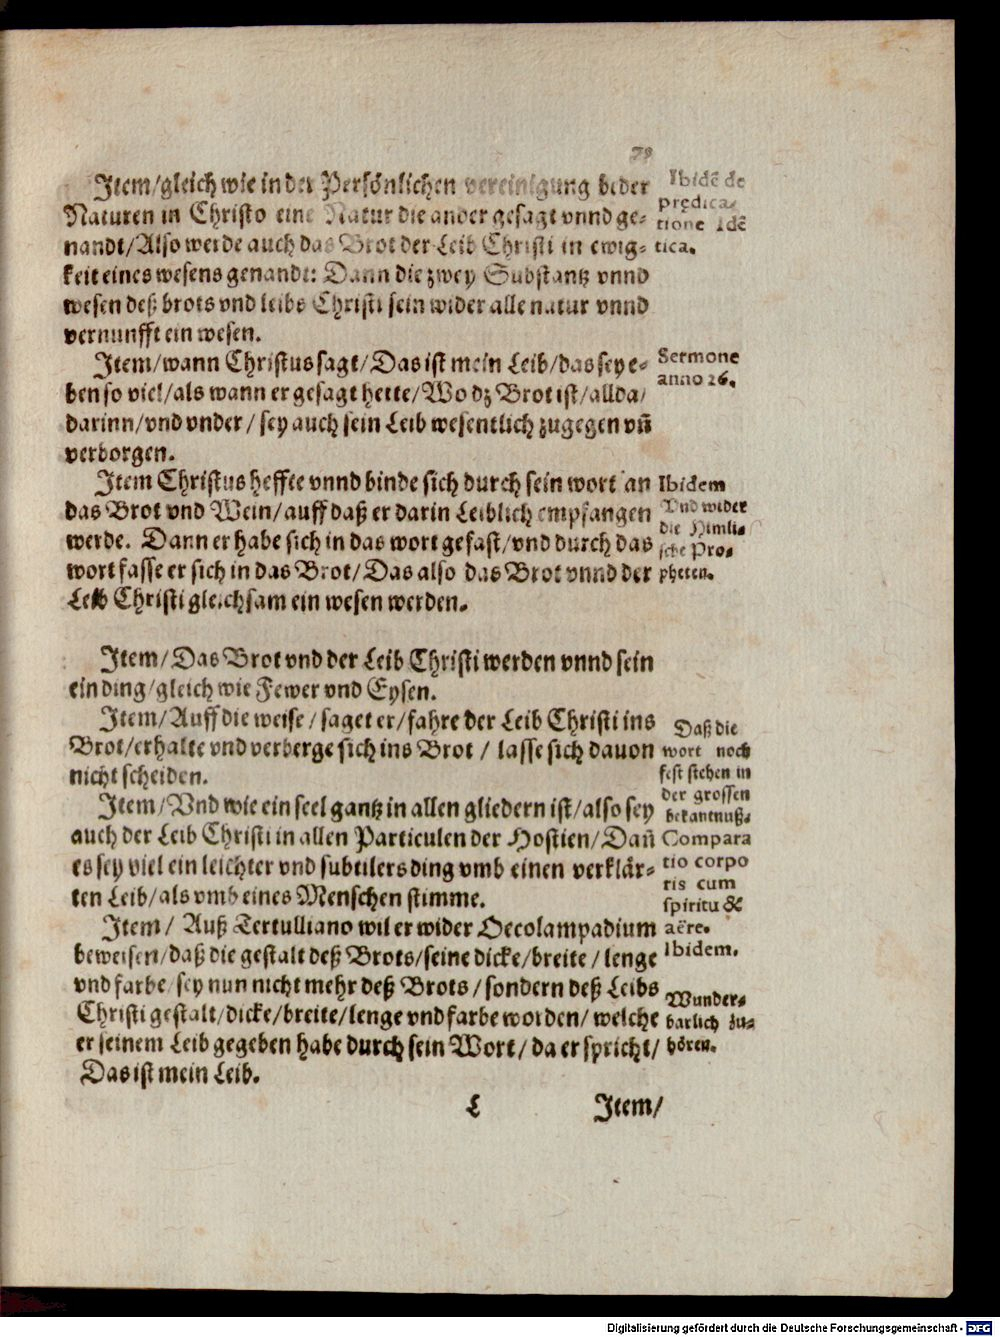 79
Item/gleich wie in der Persönlichen vereinigung beder
Naturen in Christo eine Natur die ander gesagt vnnd ge-
nandt/Also werde auch das Brot der Leib Christi in ewig-
keit eines wesens genandt: Dann die zwey Substantz vnnd
wesen deß brots vnd leibs Christi sein wider alle natur vnnd
vernunfft ein wesen.
Ibidē de
prędica-
tione Idē
tica.
Item/wann Christus sagt/Das ist mein Leib/das sey e-
ben so viel/als wann er gesagt hette/Wo dz Brot ist/allda/
darinn/vnd vnder/sey auch sein Leib wesentlich zugegen vñ
verborgen.
Sermone
anno 26.
Item Christus heffte vnnd binde sich durch sein wort an
das Brot vnd Wein/auff daß er darin Leiblich empfangen
werde. Dann er habe sich in das wort gefast/vnd durch das
wort fasse er sich in das Brot/Das also das Brot vnnd der
Leib Christi gleichsam ein wesen werden.
Ibidem
Vnd wider
die Himli-
sche Pro-
pheten.
Item/Das Brot vnd der Leib Christi werden vnnd sein
ein ding/gleich wie Fewer vnd Eysen.
Item/Auff die weise/saget er/fahre der Leib Christi ins
Brot/erhalte vnd verberge sich ins Brot/lasse sich dauon
nicht scheiden.
Item/Vnd wie ein seel gantz in allen gliedern ist/also sey
auch der Leib Christi in allen Particulen der Hostien/Dañ
es sey viel ein leichter vnd subtilers ding vmb einen verklär-
ten Leib/als vmb eines Menschen stimme.
Daß die
wort noch
fest stehen in
der grossen
bekantnuß.
Compara
tio corpo
ris cum
spiritu &
aëre.
Ibidem.
Item/ Auß Tertulliano wil er wider Oecolampadium
beweisen/daß die gestalt deß Brots/seine dicke/breite/lenge
vnd farbe/sey nun nicht mehr deß Brots/sondern deß Leibs
Christi gestalt/dicke/breite/lenge vnd farbe worden/welche
er seinem Leib gegeben habe durch sein Wort/da er spricht/
Das ist mein Leib.
Wunder-
barlich zu-
hören.
L Item/
Digitalisierung gefördert durch die Deutsche Forschungsgemeinschaft - DFG